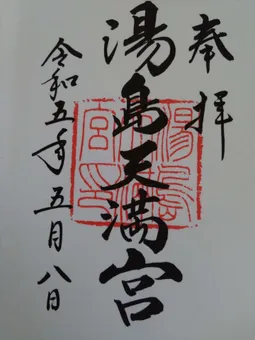 奉拝
湯島天満宮
令和五年五月八日